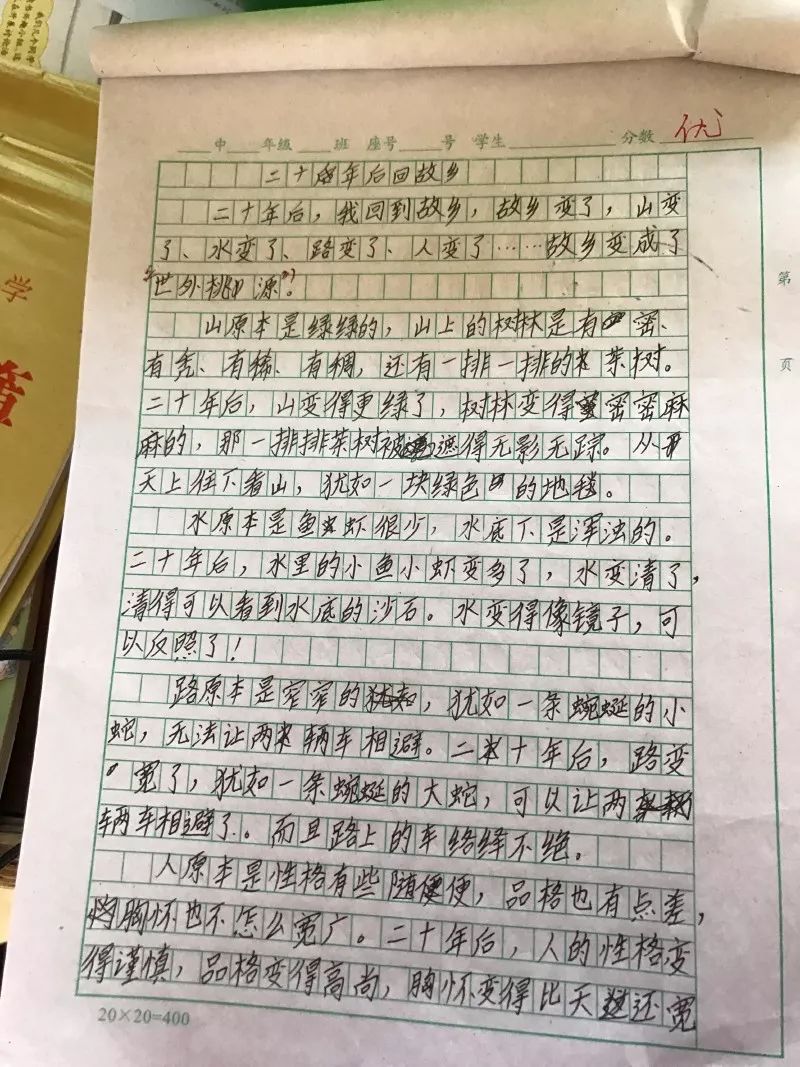 中 年级 班 座号 号 学生 分数 优
二十年后回故乡
二十年后，我回到故乡，故乡变了，山变
了、水变了、路变了、人变了……故乡变成了
世外桃源。
山原本是绿绿的，山上的树林是有密、
有秃、有稀、有稠，还有一排一排的茶树。
二十年后，山变得更绿了，树林变得密密麻
麻的，那一排排茶树被遮得无影无踪。从
天上往下看山，犹如一块绿色的地毯。
水原本是鱼虾很少，水底下是浑浊的。
二十年后，水里的小鱼小虾变多了，水变清了，
清得可以看到水底的沙石。水变得像镜子，可
以反照了！
路原本是窄窄的，犹如一条蜿蜒的小
蛇，无法让两辆车相避。二十年后，路变
宽了，犹如一条蜿蜒的大蛇，可以让两
辆车相避了。而且路上的车络绎不绝。
人原本是性格有些随便，品格也有点差，
胸怀也不怎么宽广。二十年后，人的性格变
得谨慎，品格变得高尚，胸怀变得比天还宽
20×20=400
第
页
学